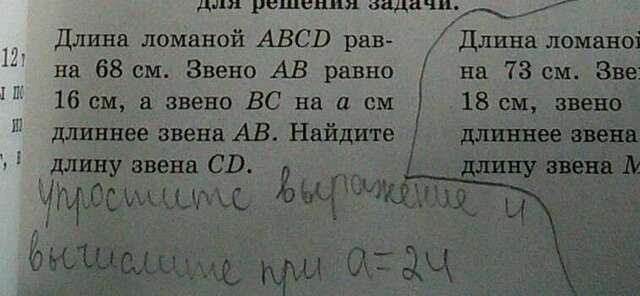 для решения задачи.
Длина ломаной ABCD рав-
на 68 см. Звено AB равно
16 см, а звено BC на a см
длиннее звена AB. Найдите
длину звена CD.
Длина ломаной
на 73 см.
18 см, звено
длиннее звена
длину звена
12
упростите выражение и
вычислите при a=24